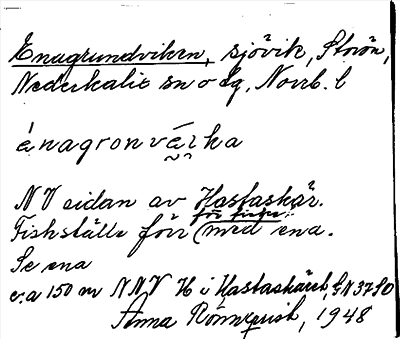 Enagrundviken, sjövik, Storön,
Nederkalix sn o sg, Norrb. l
ánagronvä́rka
NV sidan av Hastaskär.
för fiske
Fiskställe förr (med ena.
Se ena
c:a 150 m NNV H i Hastaskäret, GN 37 SO
Anna Rönnqvist, 1948